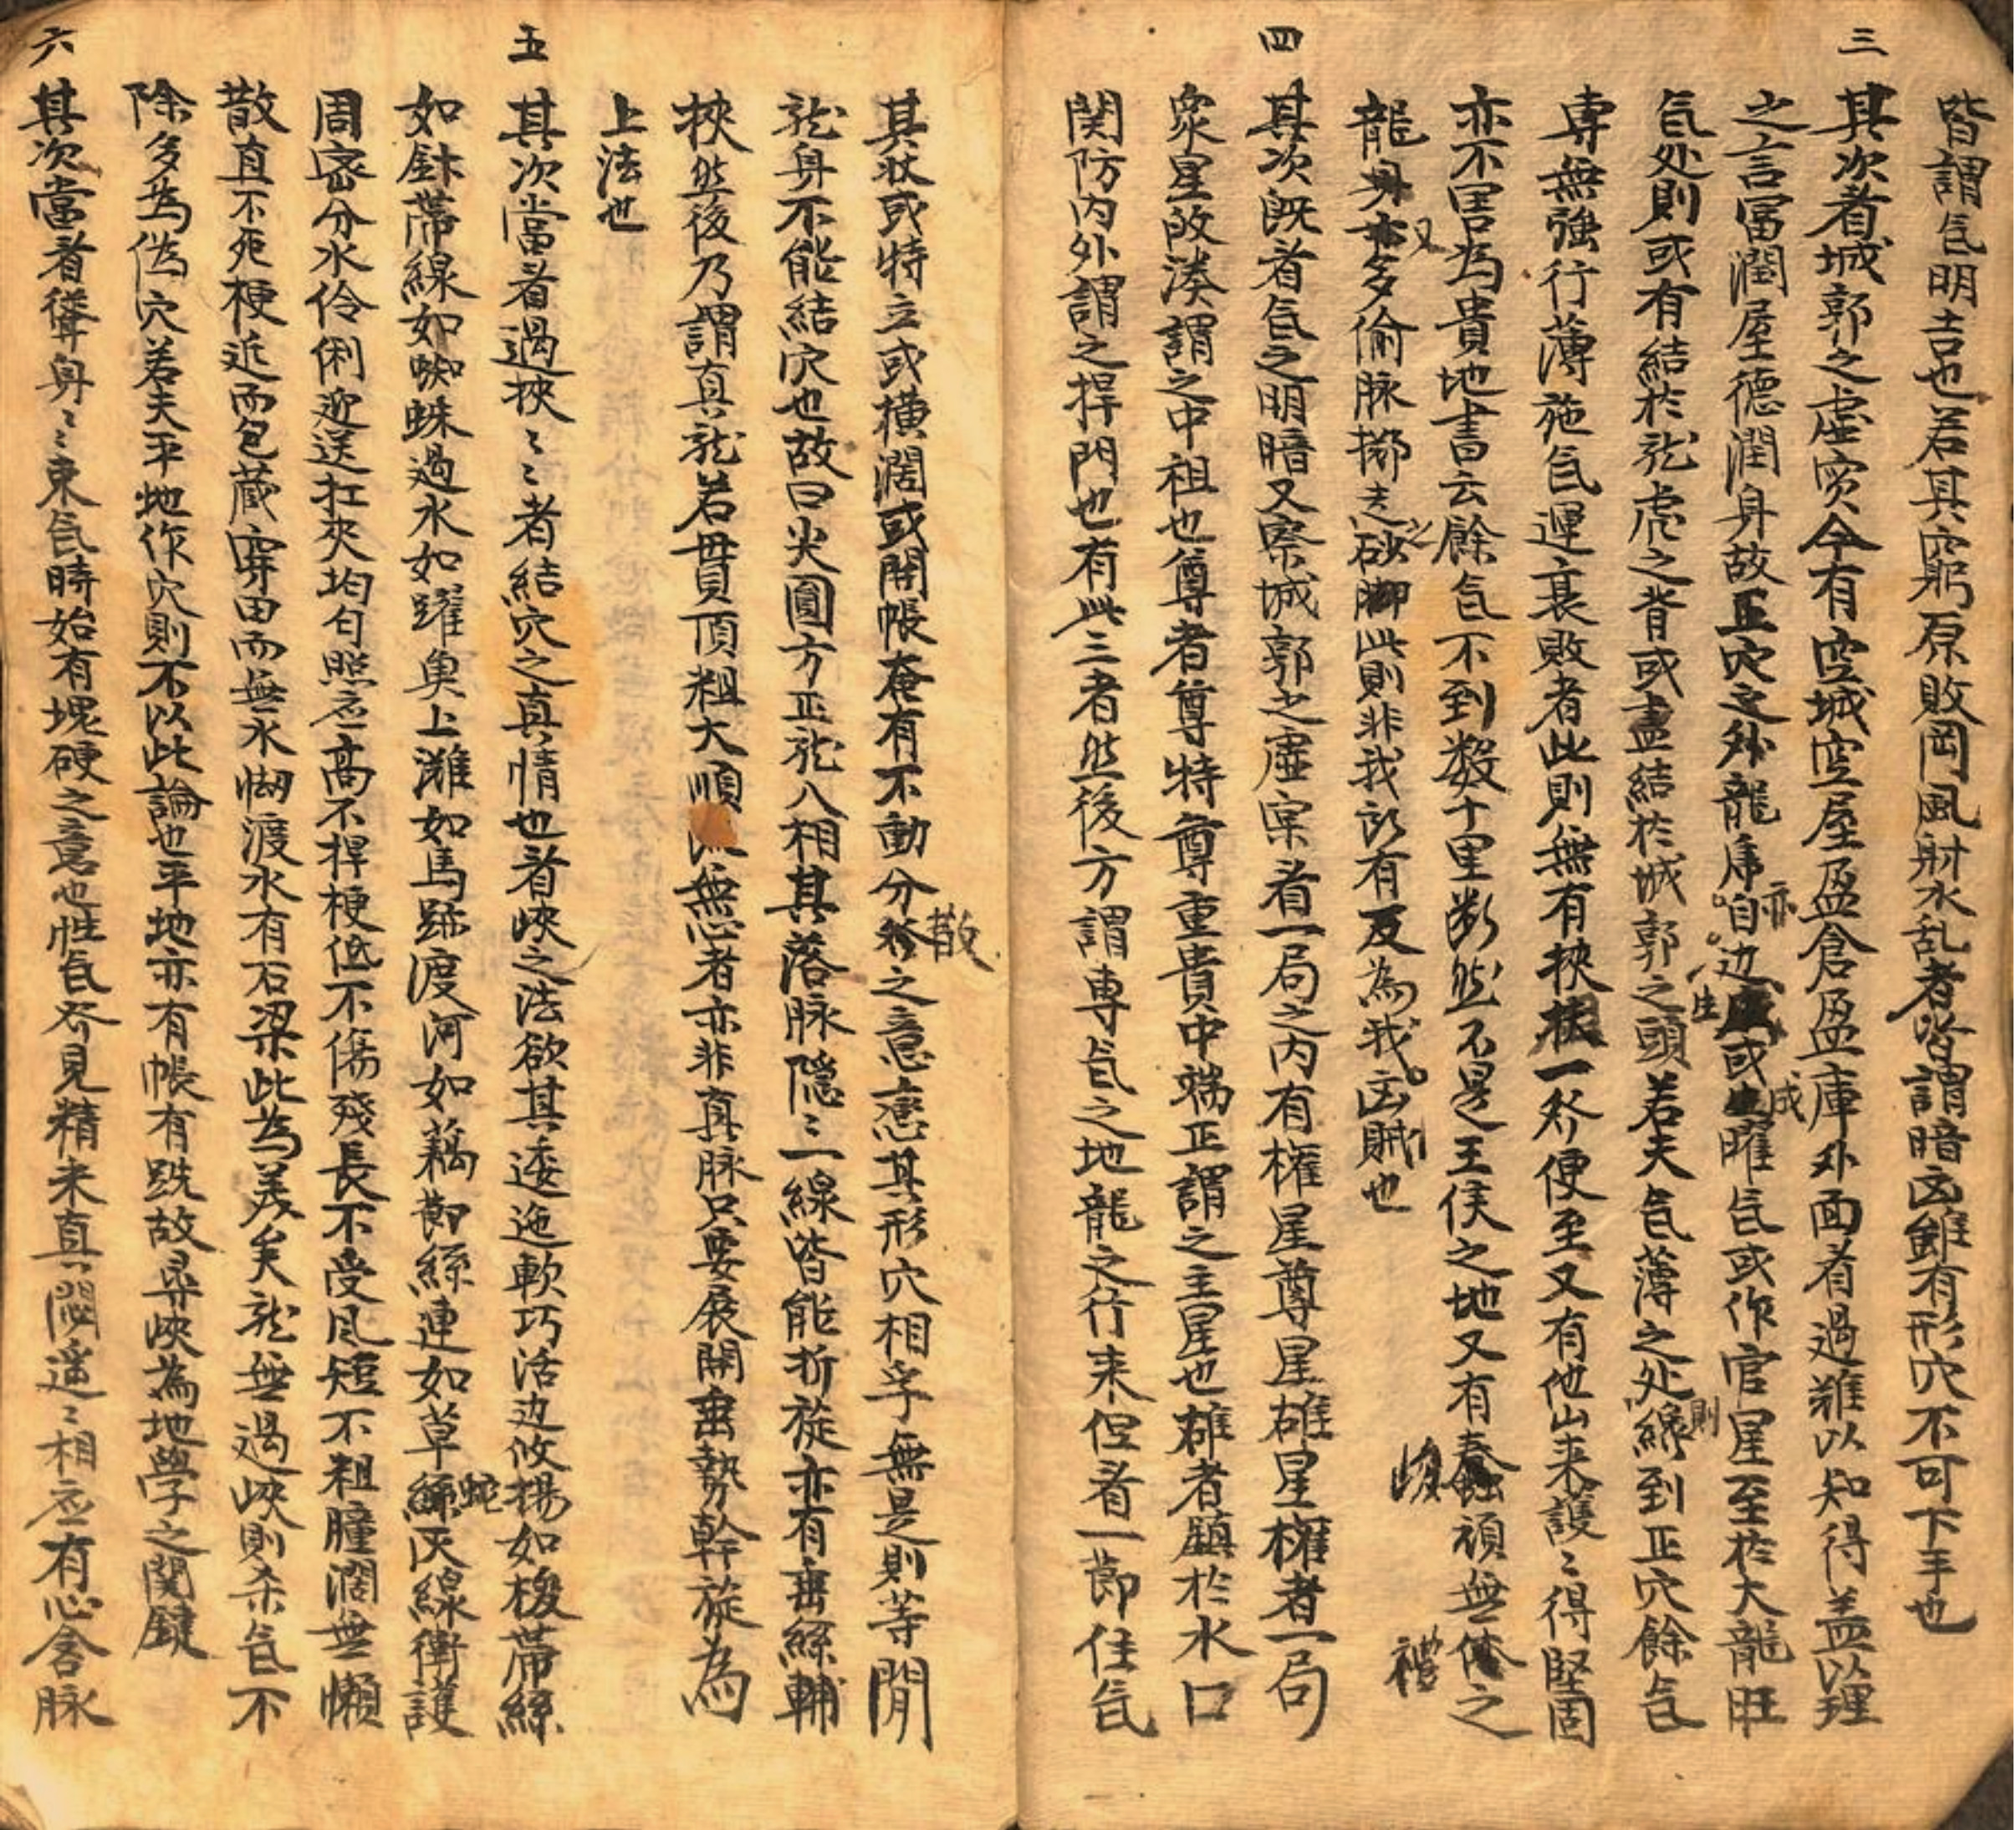 皆謂気明吉也若其窮原敗岡風射水乱者皆謂暗凶雖有形穴不可下手也
三
其次看城郭之虚实今有空城空屋盈倉盈庫外面看過難以知得盖以理
之言富潤屋德潤身故正穴之外龍虎自亦边生或成曜気或作官星至於大龍旺
気处則或有結於龙虎之背或盡結於城郭之頭若夫気薄之处則緣到正穴餘気
専無強行薄施気運衰敗者此則無有挾扶一発便至又有他山来護〻得堅固
亦不害為貴地書云餘気不到数十里断然不是王侯之地又有蠢頑無俺之
峻 禮
龍身又多偷脉擲走砂脚此則非我所有反為我凶賊也
四
其次既看気之明暗又察城郭之虚宲看一局之内有權星尊星雄星權者一局
衆星攸湊謂之中祖也尊者尊特尊重貴中端正謂之主星也雄者鎮於水口
関防内外謂之捍門也有此三者然後方謂專気之地龍之行来但看一節住気
其状或特立或横濶或開帳奄有不動分散之意〻其形穴相孚無是則等閒
龙身不能結穴也故曰尖圓方正龙八相其落脉隠〻一線皆能折旋亦有垂絲輔
挾然後乃謂真龙若毌貫頂粗大順無忌者亦非真脉只要展開垂勢幹旋為
上法也
五
其次當看過挾〻者結穴之真情也看峽之法欲其逶迤軟巧活边攸揚如梭帶絲
如針帶線如蜘蛛過水如躍魚上灘如馬跡渡河如藕節絲連如草蛇灰線衛護
周密分水伶俐迎送扛夾均匀照应高不捍梗低不傷殘長不受風短不粗腫濶無懶
散直不死梗近而包藏穿田而無水㘭渡水有石梁此為美矣龙無過峽則杀気不
除多為偽穴若夫平地作穴則不以此論也平地亦有帳有跣故尋峽為地學之関鍵
六
其次當看從身〻束気時始有塊硬之意也性気発見精来真関遥〻相应有心含脉